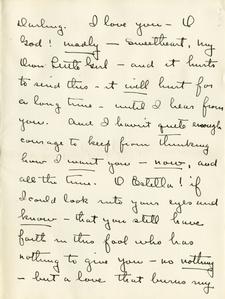 Darling. I love you — O
God! madly — sweetheart, my
Own Little Girl — and it hurts
to send this — it will hurt for
a long time — until I hear from
you. And I havn't quite enough
courage to keep from thinking
how I want you — now, and
all the time. O Estella! if
I could look into your eyes and
know — that you still have
faith in this fool who has
nothing to give you — no nothing
— but a love that burns my